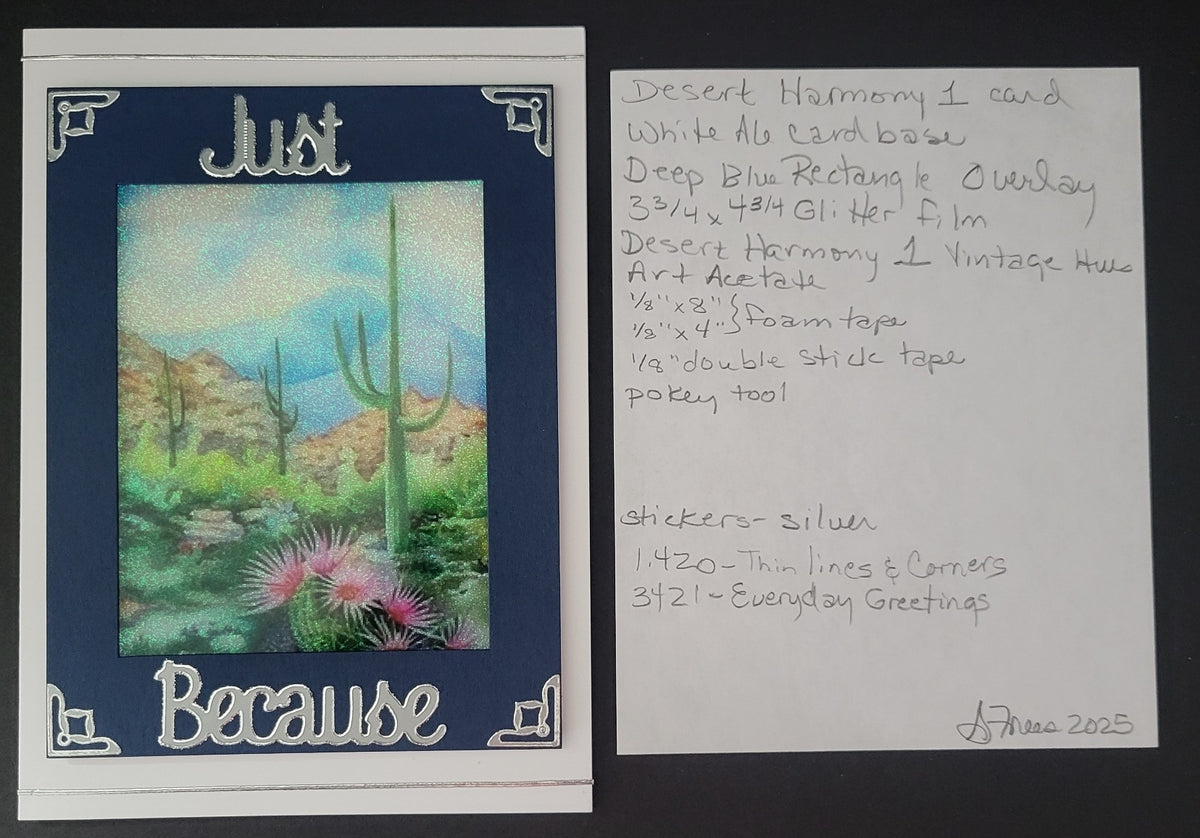 Just
Because
Desert Harmony 1 card
White A6 cardbase
Deep Blue Rectangle Overlay
3 3/4 x 4 3/4 Glitter film
Desert Harmony 1 Vintage Hues
Art Acetate
1/8" x 8" } foam tape
1/8" x 4"
1/8" double stick tape
pokey tool
stickers - silver
1.420 - Thin lines & Corners
3421 - Everyday Greetings
2025